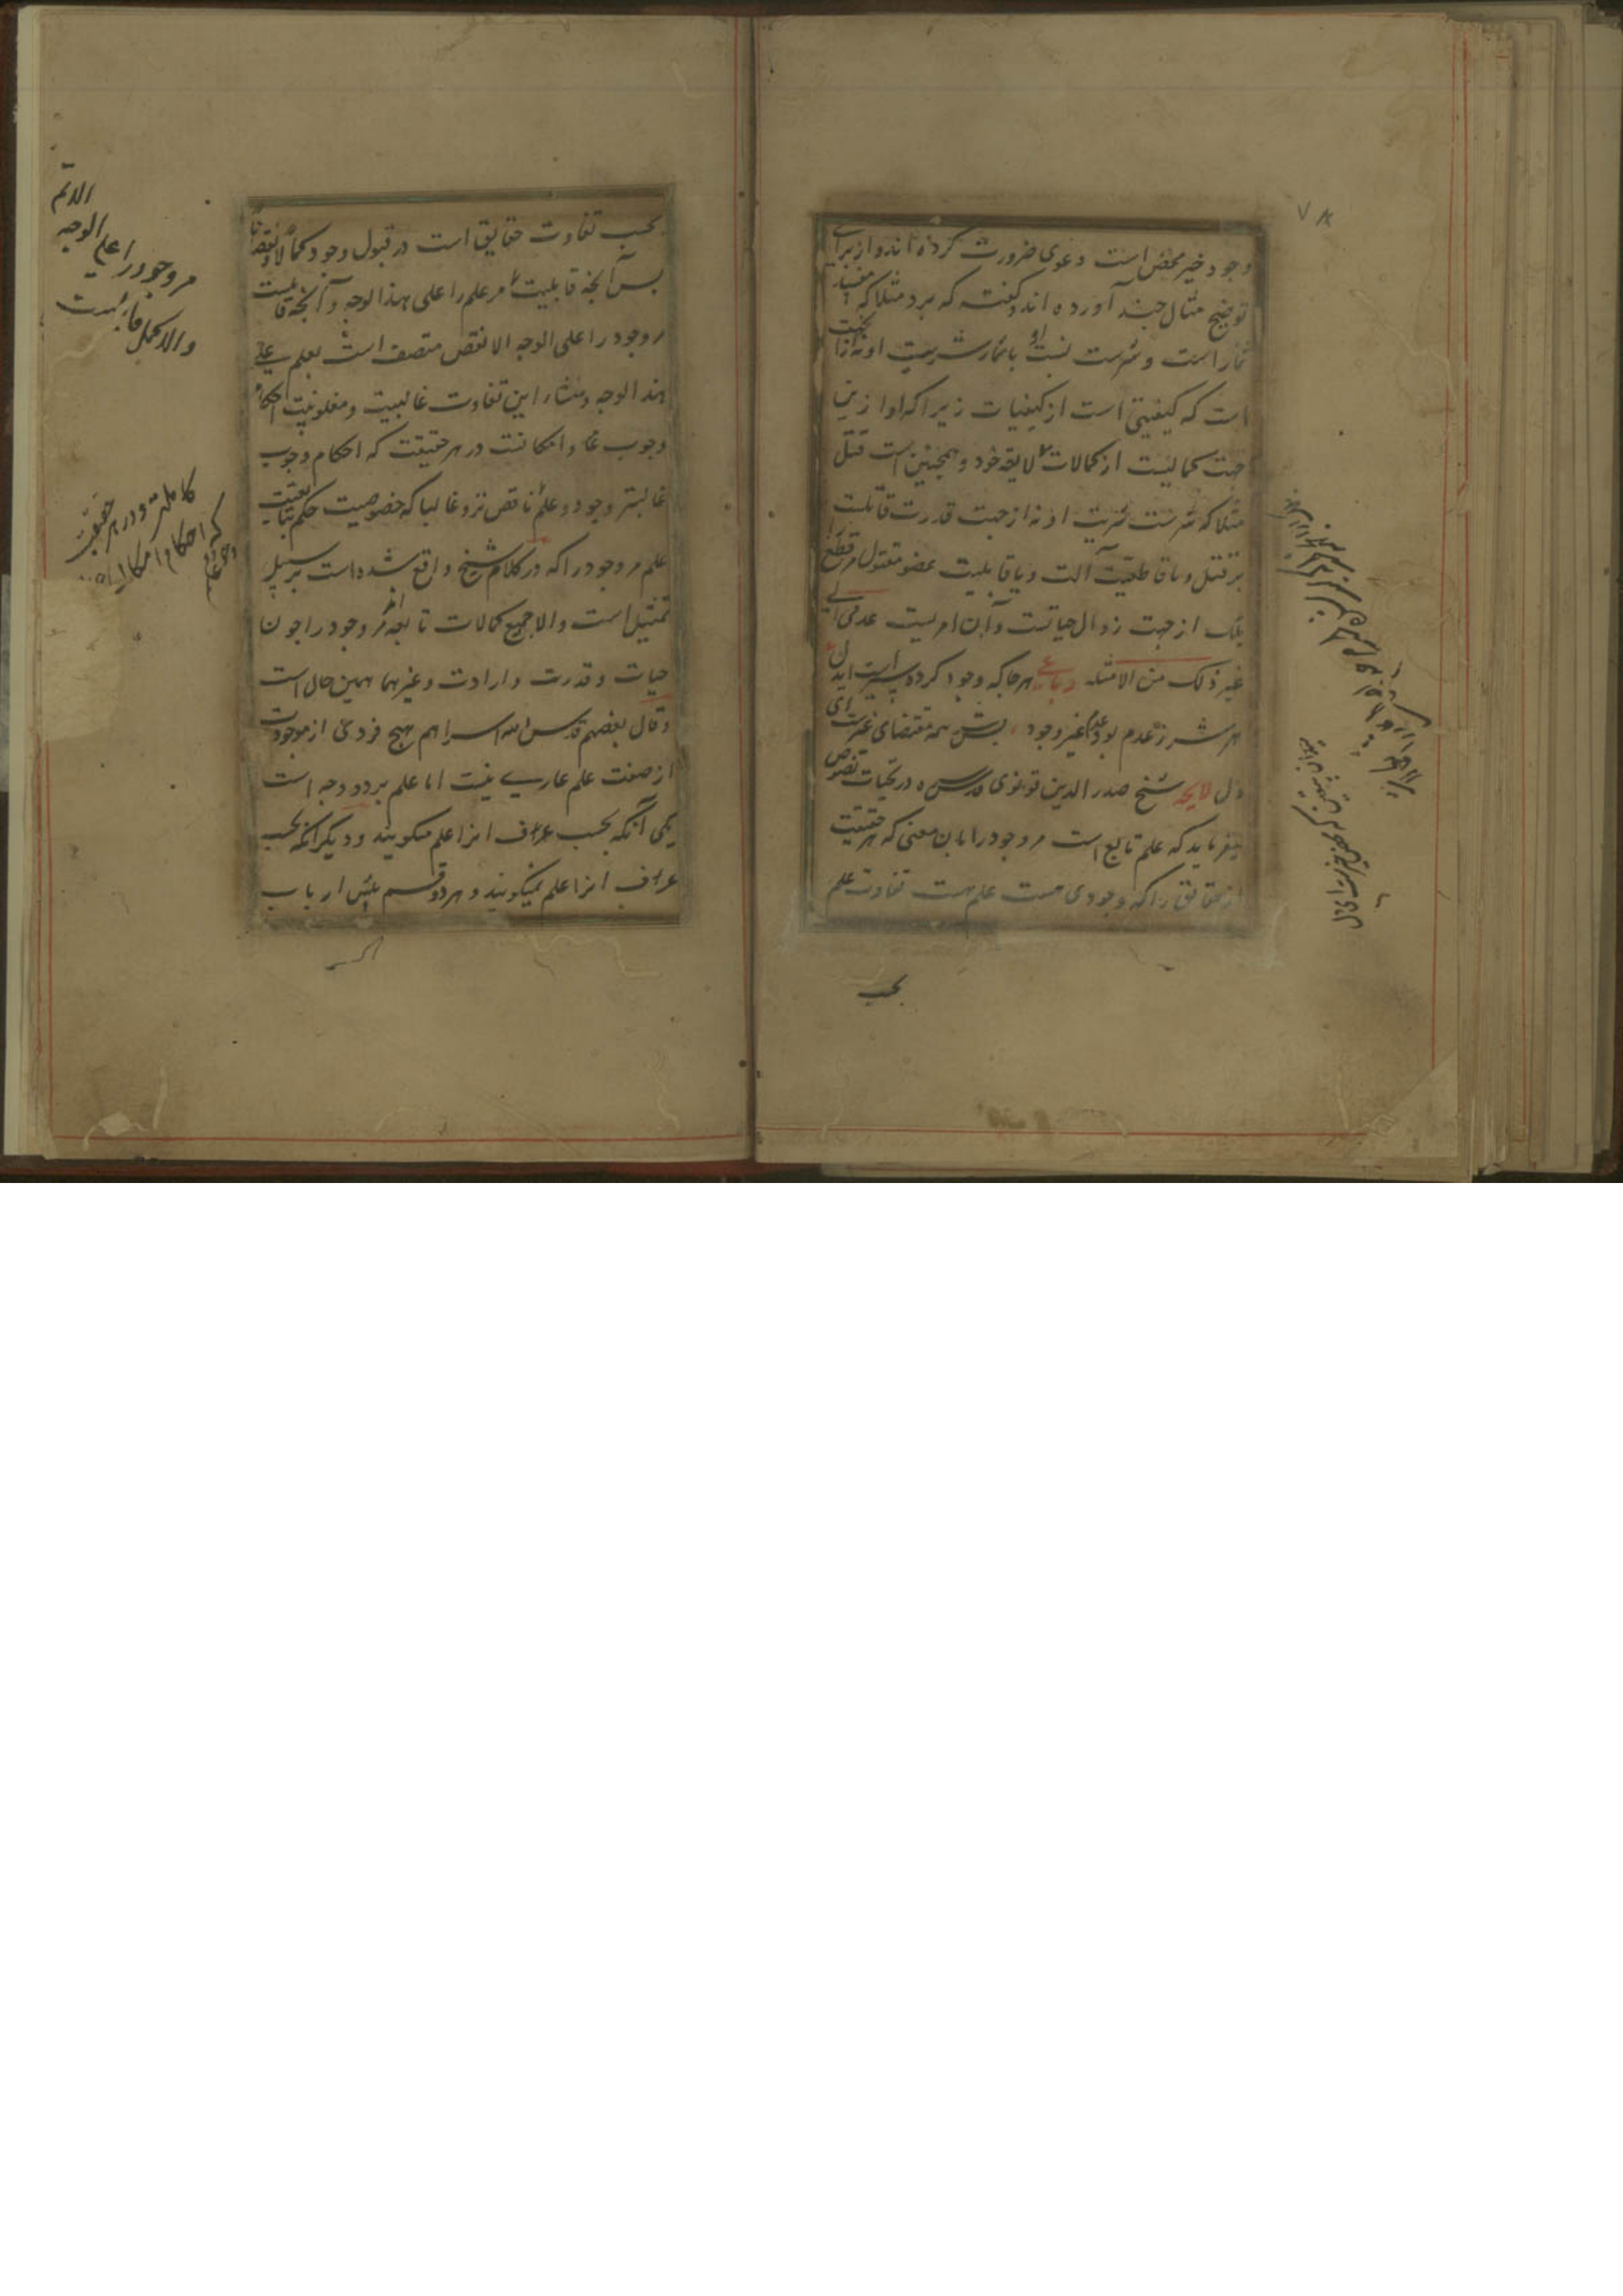 وجود خیر محض است دعوی ضرورت کرده اند و از برای
توضیح مثال چند آورده اند و گفته که برد مثلا که مفسد
ثمار است و شرست نسبت باثمار شریت او نه ازان جهت
است که کیفیتی است از کیفیات زیرا که او ازین
جهت کمالیست از کمالات لایقه خود و همچنین است قتل
مثلا که شرست شریت او نه از جهت قدرت قاتلست
بر قتل و یا قاطعیت آلت و یا قابلیت عضو مقتول مر قطع را
بلک از جهت زوال حیاتست و آن امریست عدمی الی
غیر ذلک من الامثله رباعی هرجا که وجود کرده سیر است ای دل
هر شر ز عدم بود عدم غیر وجود پس شر همه مقتضای غیر است ای
دل لایحه شیخ صدر الدین قونوی قدس سره در کتاب نصوص
میفرماید که علم تابع است مر وجود را بان معنی که هر حقیقت
از حقایق را که وجودی هست علم هست تفاوت علم
بحسب
بحسب تفاوت حقایق است در قبول وجود کمالا و نقصانا
پس آنچه قابلیت مر علم را علی هذا الوجه و آنچه قابلیت
مر وجود را علی الوجه الانقص متصف است بعلم علی
هذا الوجه و منشاء این تفاوت غالبیت و مغلوبیت احکام
وجوب و امکانست در هر حقیقت که احکام وجوب
غالبتر وجود و علم ناقص تر و غالبا که خصوصیت حکم بتابعیت
علم مر وجود را که در کلام شیخ واقع شده است بر سبیل
تمثیل است و الا جمیع کمالات تابعه مر وجود را چون
حیات و قدرت و ارادت و غیرهما همین حال است
و قال بعضهم قدس الله اسرارهم هیچ فردی از موجودات
از صفت علم عاری نیست اما علم بر دو وجه است
یکی آنکه بحسب عرف انرا علم میگویند و دیگر انکه بحسب
عرف انرا علم نمیگویند و هر دو قسم پیش ارباب
مر وجود را علی الوجه الاتم
والاکمل قابلست
کاملتر و در هر حقیقت
که احکام امکان